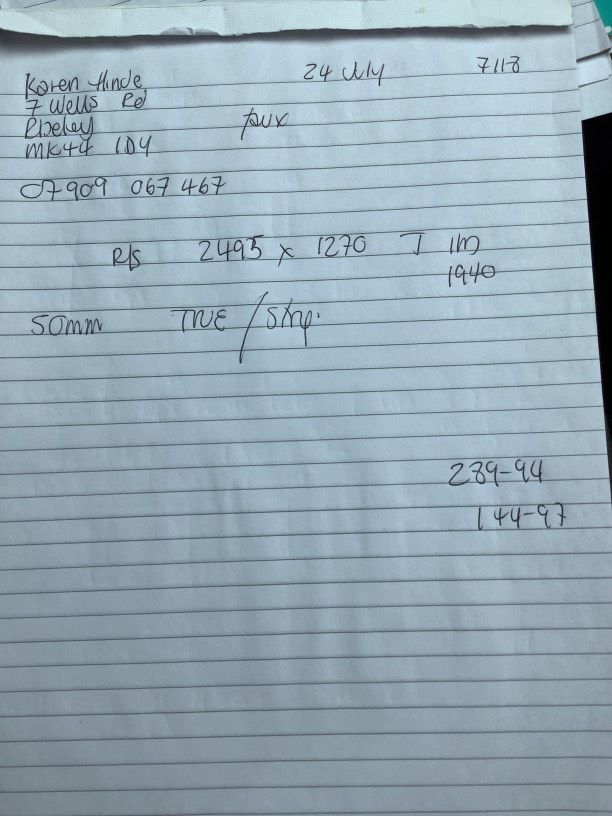 Karen Hinde 24 July 7118
7 Wells Rd
Riseley
MK44 1DY
07909 067 467
R/s 2495 x 1270 J 1m
1940
50mm TNE / Strip.
289-94
144-97